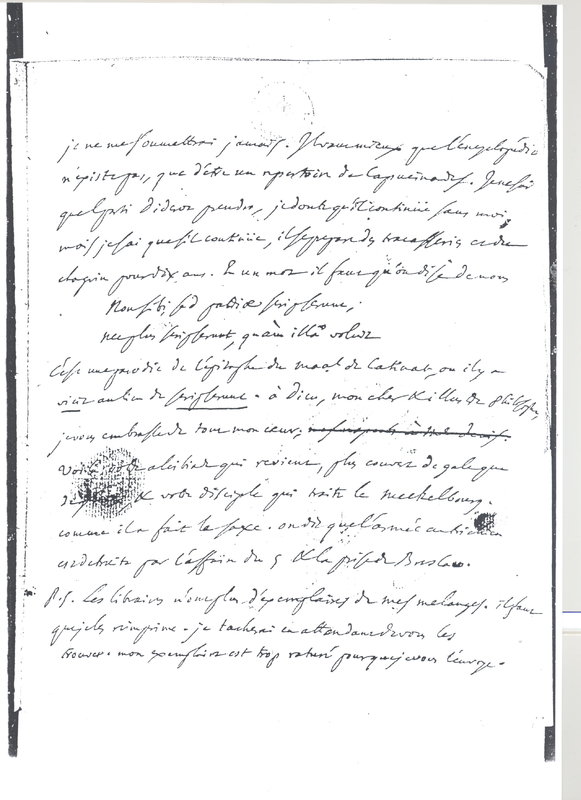 je ne me soumettrai jamais. Il vaut mieux que l'encyclopédie
n'existe pas, que d'etre un repertoire de capucinades. Je ne sai
quel parti diderot prendra, je doute qu'il continue sans moi,
mais je sai que s'il continue, il se prepare des tracasseries et du
chagrin pour dix ans. En un mot il faut qu'on dise de nous
Non sibi, sed patriae scripserunt;
nec plus scripserunt, quàm illa voluit
C'est une parodie de l'epitaphe du maal de Catinat, ou il y a
vicit au lieu de scripserunt. à Dieu, mon cher & illustre philosophe,
je vous embrasse de tout mon coeur;
alcibiade qui revient, plus couvert de gale que
de & votre disciple qui traite le meckelbourg
comme il a fait la saxe. on dit que l'armée autrichienne
est detruite par l'affaire du 5 & la prise de Breslau.
P.S. Les libraires n'ont plus d'exemplaires de mes melanges. il faut
que je les reimprime. je tacherai en attendant de vous les
trouver. mon exemplaire est trop raturé pour que je vous l'envoye.